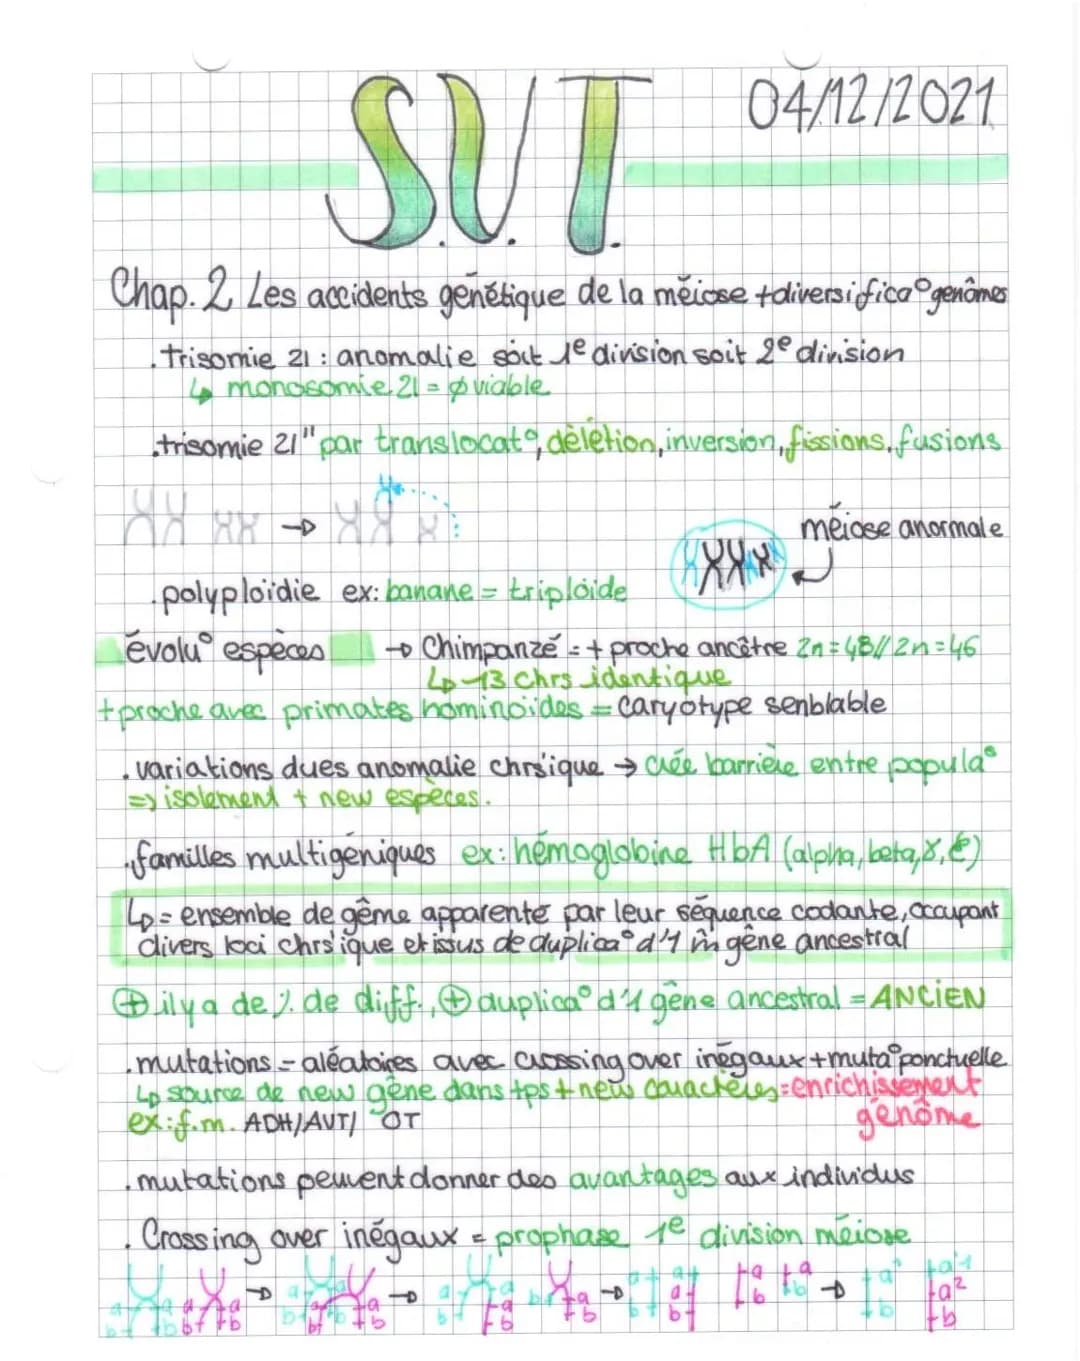 S.V.T.
04/12/2021
Chap. 2 Les accidents génétique de la méiose + diversificaº génômes
. trisomie 21 : anomalie soit 1e division soit 2e division
↳ monosomie 21 = ø viable
. trisomie 21" par translocatº, délétion, inversion, fissions, fusions
méiose anormale
. polyploïdie ex: banane = triploïde
évoluº espèces → Chimpanzé = + proche ancêtre 2n=48//2n=46
↳ 13 chrs identique
+ proche avec primates hominoïdes = caryotype senblable
. variations dues anomalie chrs'ique → crée barrière entre populaº
=> isolement + new espèces.
. familles multigéniques ex: hémoglobine HbA (alpha, beta, γ, ε)
↳ = ensemble de gême apparenté par leur séquence codante, occupant
divers loci chrs'ique et issus de duplicaº d'1 m̂ gêne ancestral
⊕ il y a de % de diff., ⊕ duplicaº d'1 gêne ancestral = ANCIEN
. mutations = aléatoires avec crossing over inégaux + mutaº ponctuelle
↳ source de new gêne dans tps + new caractères = enrichissement
génôme
ex: f.m. ADH/AVT/ OT
. mutations peuvent donner des avantages aux individus
. Crossing over inégaux = prophase 1e division méiose